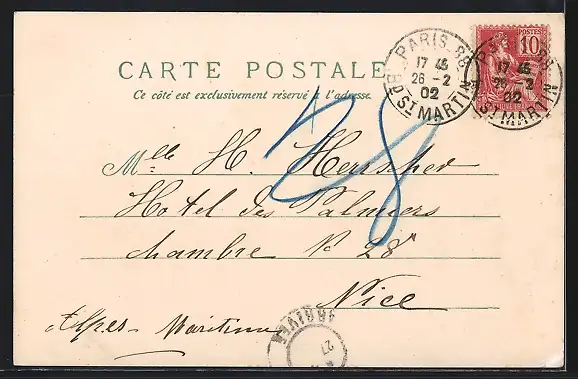 CARTE POSTALE
Ce côté est exclusivement réservé à l'adresse.
PARIS 86
17 45
26 - 2
02
Bd ST MARTIN
POSTES
10
17 45
26 - 2
02
ST MARTIN
28
Mlle H.
Hotel des Palmiers
chambre No 28
Nice
Alpes-Maritimes
ARRIVÉE
27